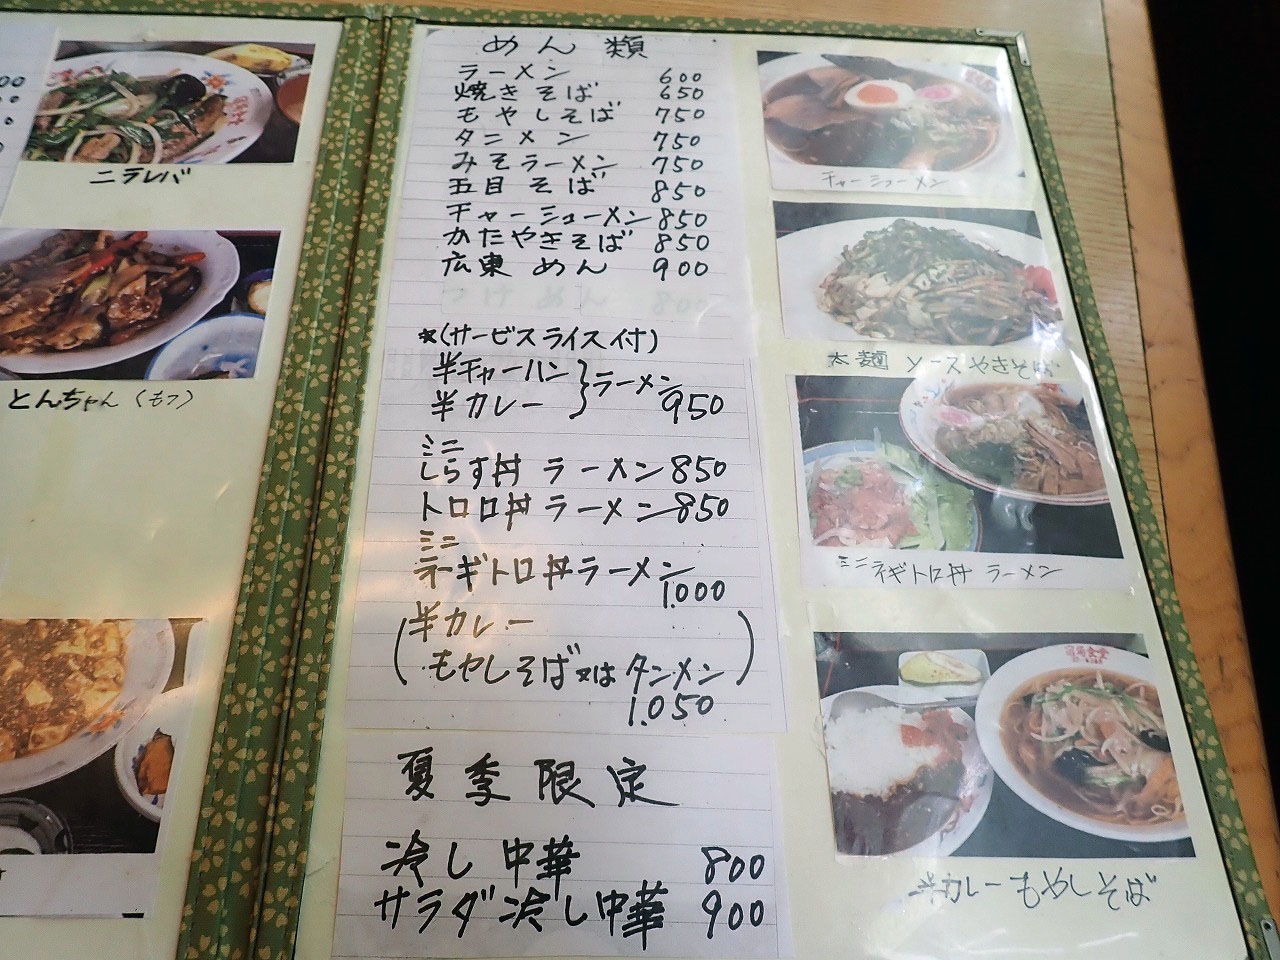 00
ニラレバ
とんちゃん(モツ)
めん類
ラーメン 600
焼きそば 650
もやしそば 750
タンメン 750
みそラーメン 750
五目そば 850
チャーシューメン 850
かたやきそば 850
広東めん 900
つけめん 800
*(サービスライス付)
半チャーハン
半カレー } ラーメン 950
ミニ
しらす丼 ラーメン 850
トロロ丼 ラーメン 850
ミニ
ネギトロ丼ラーメン
1.000
(半カレー
もやしそば又は タンメン)
1.050
夏季限定
冷し中華 800
サラダ冷し中華 900
チャーシューメン
太麺 ソースやきそば
ミニネギトロ丼 ラーメン
半カレーもやしそば